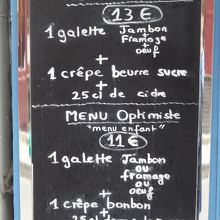 13 €
1 galette Jambon
+
Fromage
+
oeuf
+
1 crêpe beurre sucre
+
25cl de cidre
MENU Optimiste
"menu enfant"
11 €
1 galette Jambon
ou
fromage
ou
oeuf
+
1 crêpe bonbon
+
25cl